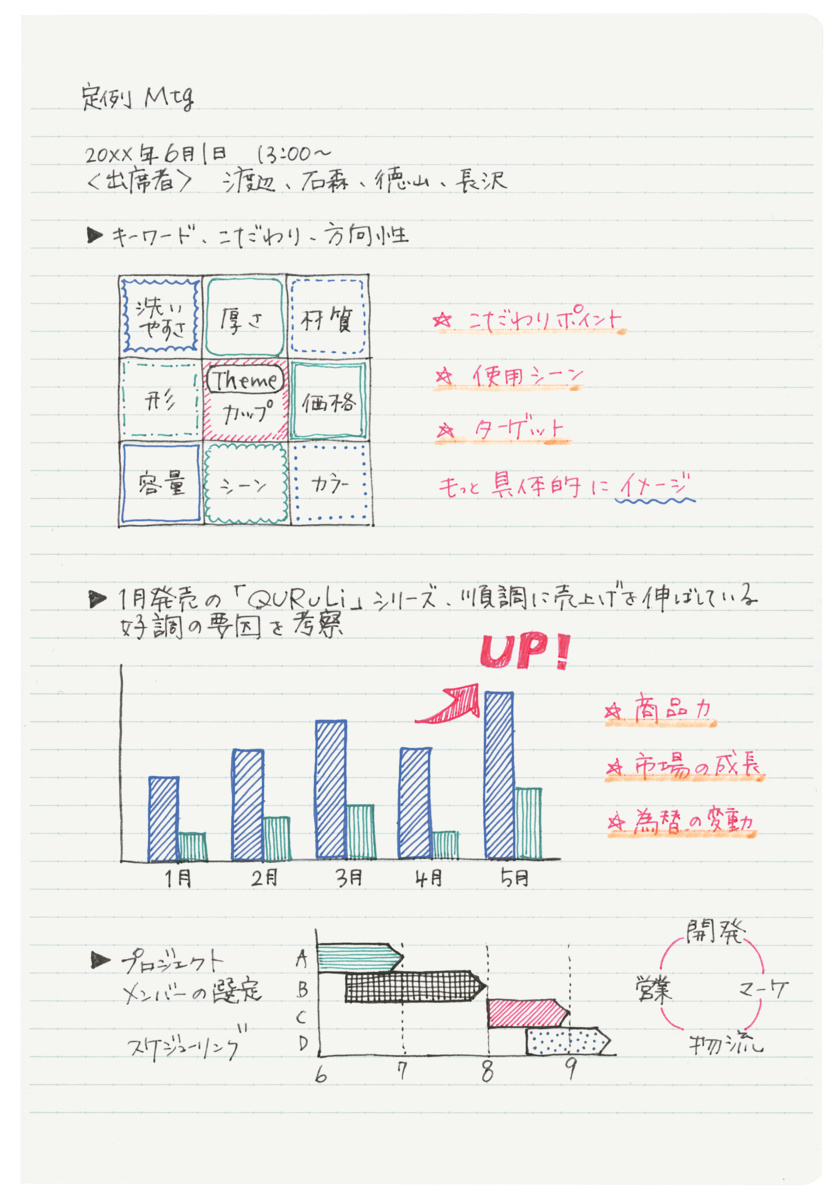 定例 Mtg
20XX年6月1日 13:00〜
<出席者> 渡辺、石森、徳山、長沢
▶ キーワード、こだわり、方向性
洗いやすさ 厚さ 材質
形 Theme カップ 価格
容量 シーン カラー
☆ こだわりポイント
☆ 使用シーン
☆ ターゲット
もっと具体的にイメージ
▶ 1月発売の「QURuLi」シリーズ、順調に売上げを伸ばしている
好調の要因を考察
UP!
1月 2月 3月 4月 5月
☆ 商品力
☆ 市場の成長
☆ 為替の変動
▶ プロジェクト
メンバーの選定
スケジューリング
A
B
C
D
6 7 8 9
開発
営業 マーケ
物流